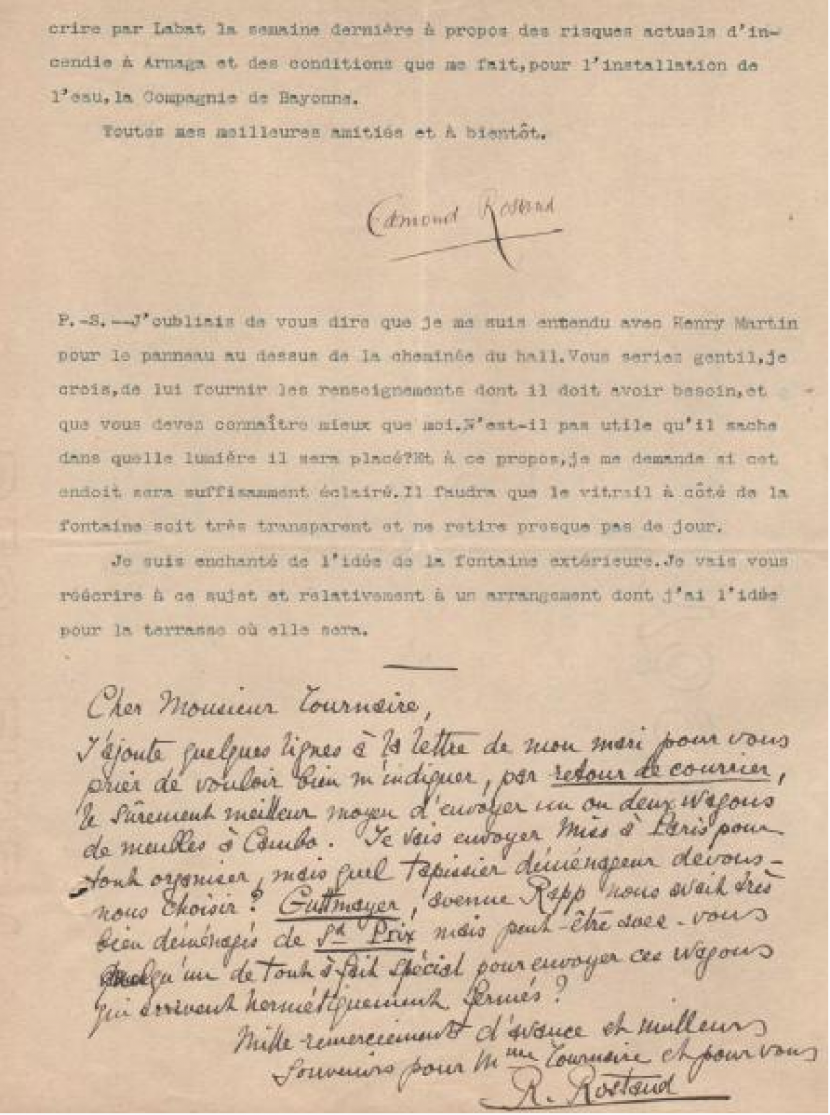 crire par Labat la semaine dernière à propos des risques actuels d'in-
cendie à Arnaga et des conditions que me fait,pour l'installation de
l'eau,la Compagnie de Bayonne.
Toutes mes meilleures amitiés et à bientôt.
Edmond Rostand
P.-S.--J'oubliais de vous dire que je me suis entendu avec Henry Martin
pour le panneau au dessus de la cheminée du hall.Vous seriez gentil,je
crois,de lui fournir les renseignements dont il doit avoir besoin,et
que vous devez connaître mieux que moi.N'est-il pas utile qu'il sache
dans quelle lumière il sera placé?Et à ce propos,je me demande si cet
endoit sera suffisamment éclairé.Il faudra que le vitrail à côté de la
fontaine soit très transparent et ne retire presque pas de jour.
Je suis enchanté de l'idée de la fontaine extérieure.Je vais vous
réécrire à ce sujet et relativement à un arrangement dont j'ai l'idée
pour la terrasse où elle sera.
Cher Monsieur Tournaire,
J'ajoute quelques lignes à la lettre de mon mari pour vous
prier de vouloir bien m'indiquer, par retour de courrier,
le sûrement meilleur moyen d'envoyer un ou deux wagons
de meubles à Cambo. Je vais envoyer Miss à Paris pour
tout organiser, mais quel tapissier déménageur devons-
nous choisir? Guttmayer, avenue Rapp nous avait très
bien déménagés de St Prix mais peut-être avez-vous
quelqu'un de tout à fait spécial pour envoyer ces wagons
qui arrivent hermétiquement fermés?
Mille remerciements d'avance et meilleurs
souvenirs pour Mme Tournaire et pour vous
R. Rostand